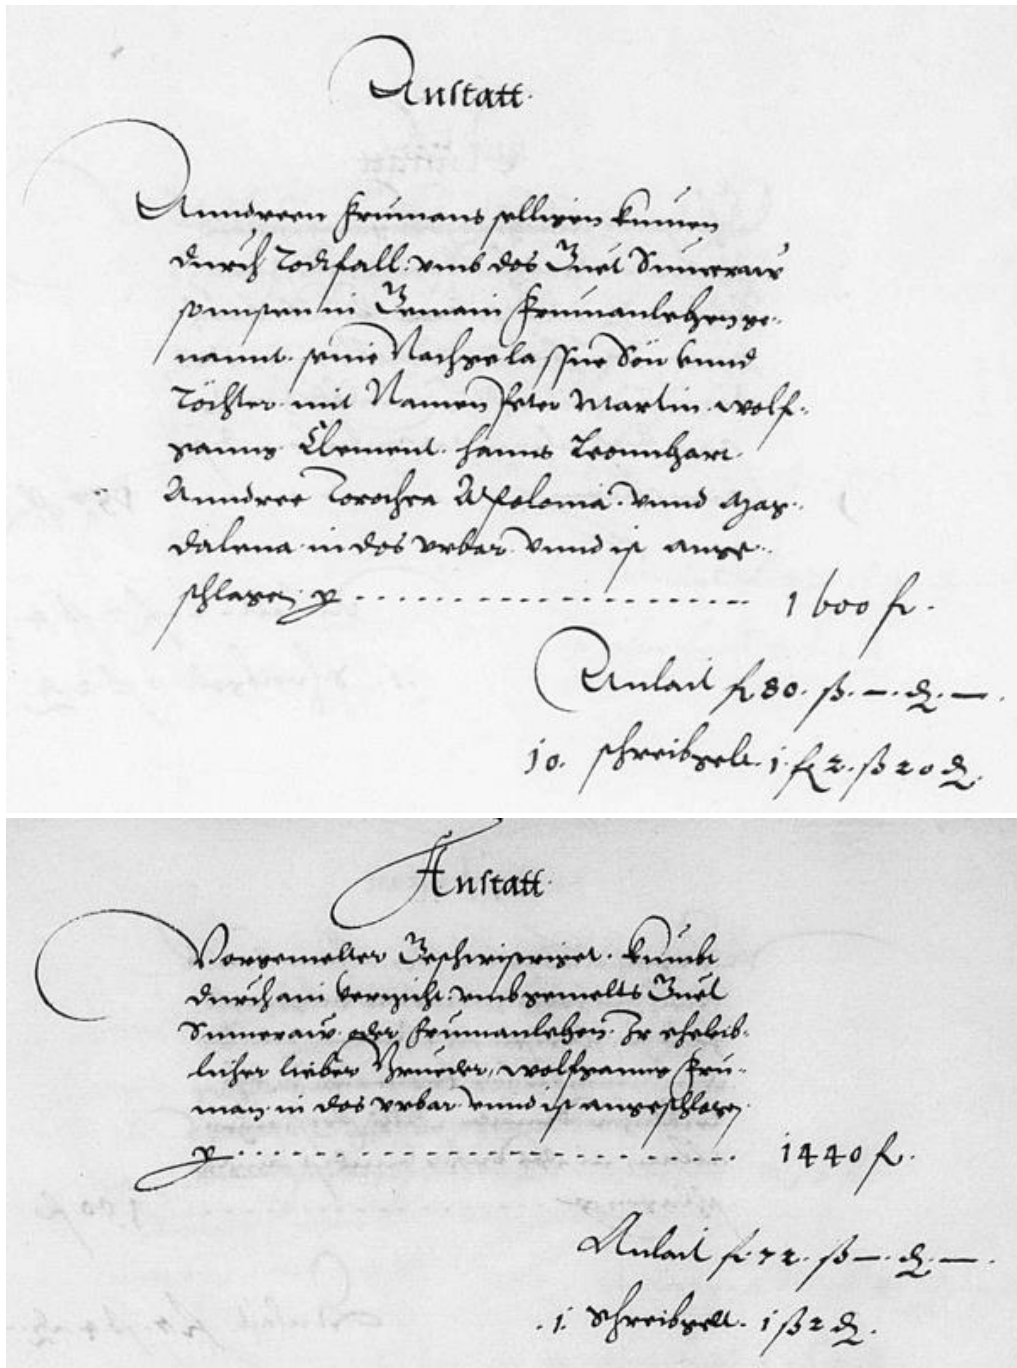 Anstatt.
Anndreen Frumans selligen kumen
durch Todtfall: vmb das Guet Sumeraw
sonnsten in Gemain Frumanlehen ge-
nannt. seine Nachgelassne Sön vnnd
Töchter mit Namen Peter Martin. wolf-
ganng Clement. hanns Leonnhart.
Anndree Dorothea Apolonia. vnnd Mag-
dalena. in das vrbar. vnnd ist ange-
schlagen p 1600 fl.
Anlait fl 80. ß. —. d. —.
10. schreibgelt. 1. fl 2. ß 20 d.
Anstatt.
Vorgemelter Geschwistriget. kumbt
durch ain verzicht. vmb gemelts Guet
Sumeraw oder Frumanlehen. Ir eheleib-
licher lieber Brueder, wolfganng Fru-
man in das vrbar. vnnd ist angeschlagen
p 1440 fl.
Anlait fl. 72. ß —. d. —.
.1. schreibgelt. 1 ß 2 d.